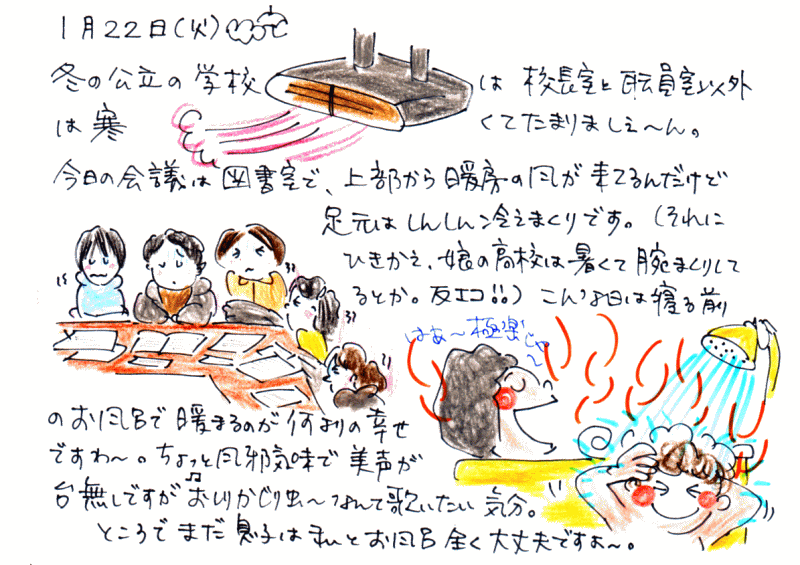 1月22日(火)
冬の公立の学校は校長室と職員室以外
は寒くてたまりましぇ〜ん。
今日の会議は図書室で、上部から暖房の風が来てるんだけど
足元はしんしん冷えまくりです。(それに
ひきかえ、娘の高校は暑くて腕まくりして
るとか。反エコ!!)こんな日は寝る前
はあ〜極楽じゃ〜
のお風呂で暖まるのが何よりの幸せ
ですわ〜。ちょっと風邪気味で美声が
台無しですが♫おしりかじり虫〜なんて歌いたい気分。
ところでまだ息子は私とお風呂全く大丈夫ですぉ〜。